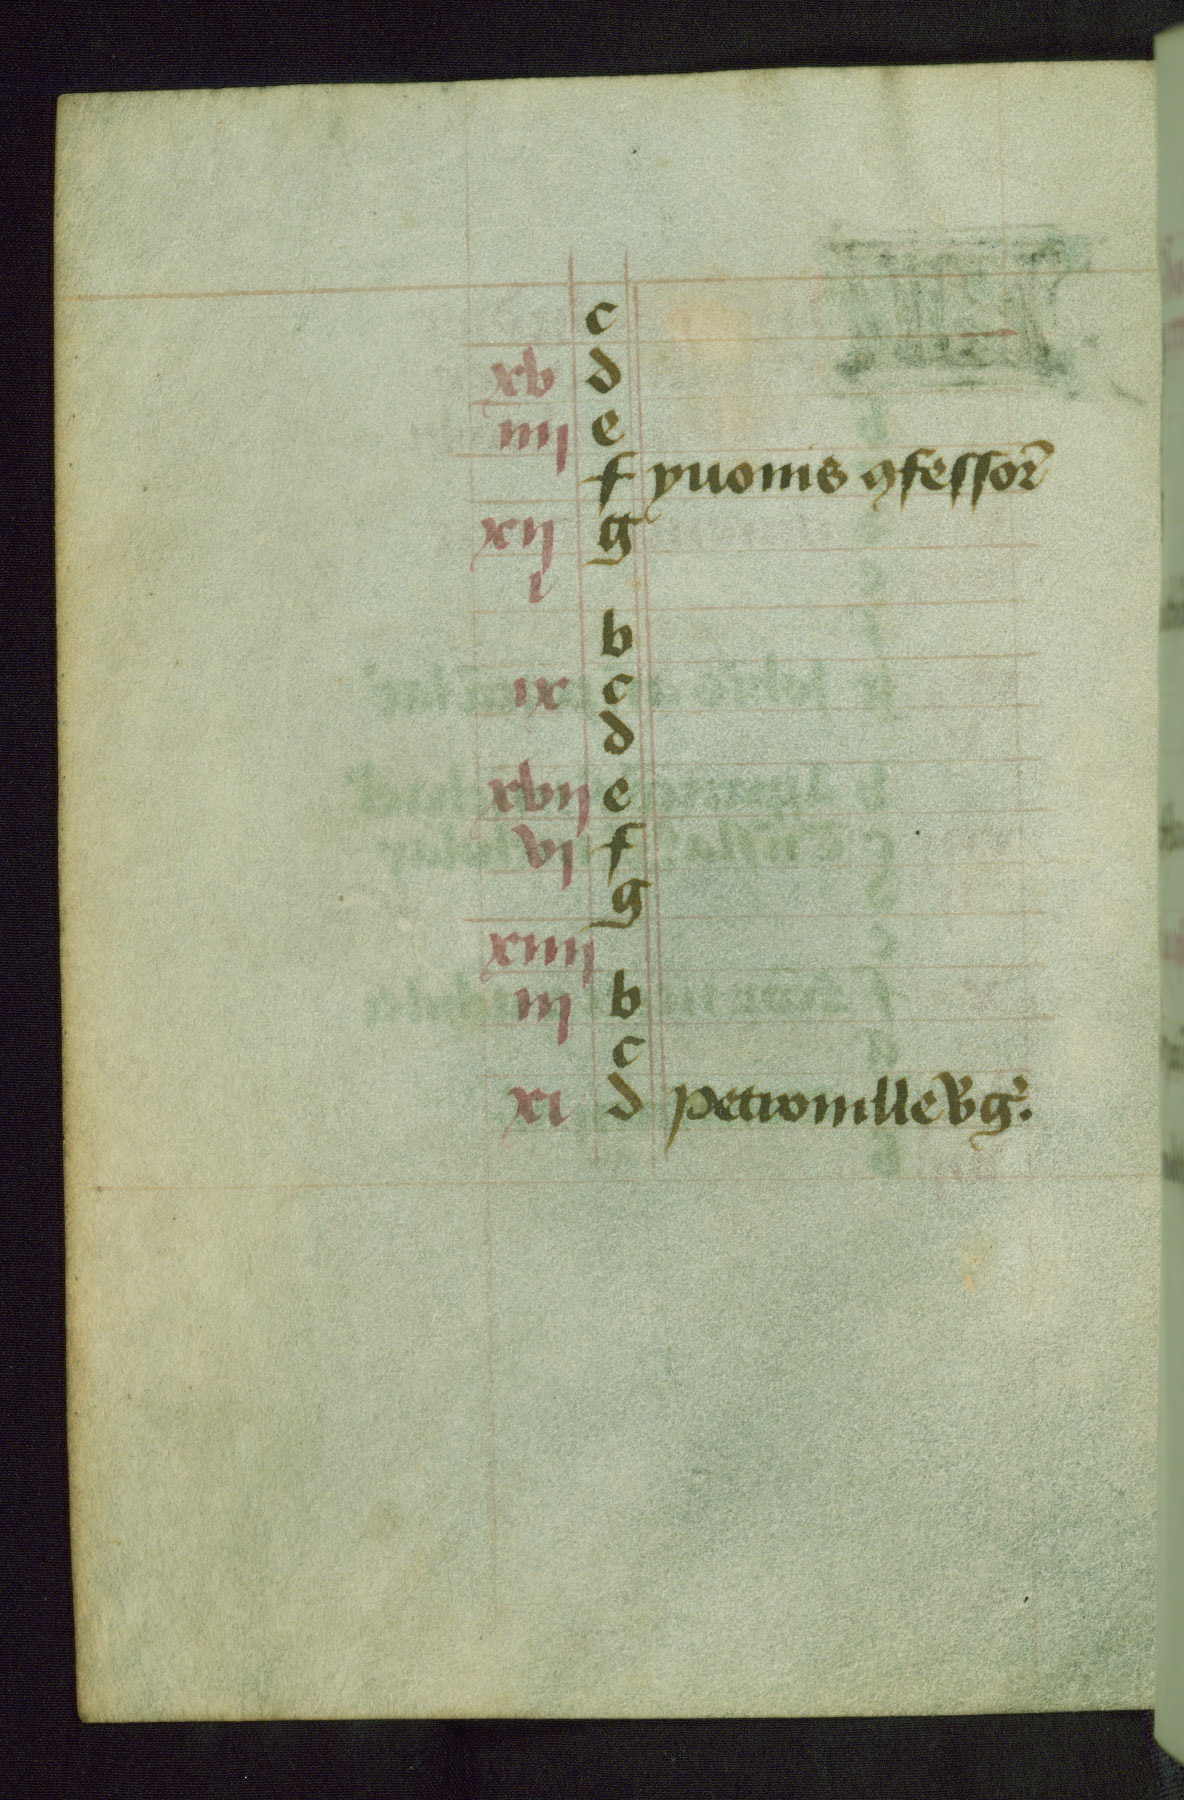 c
xv d
iiij e
f yuonis ꝯfessor̄
xij g
i
b
ix c
d
xvij e
vj f
g
xiiij
iij b
c
xi d petronille v̄g̾.